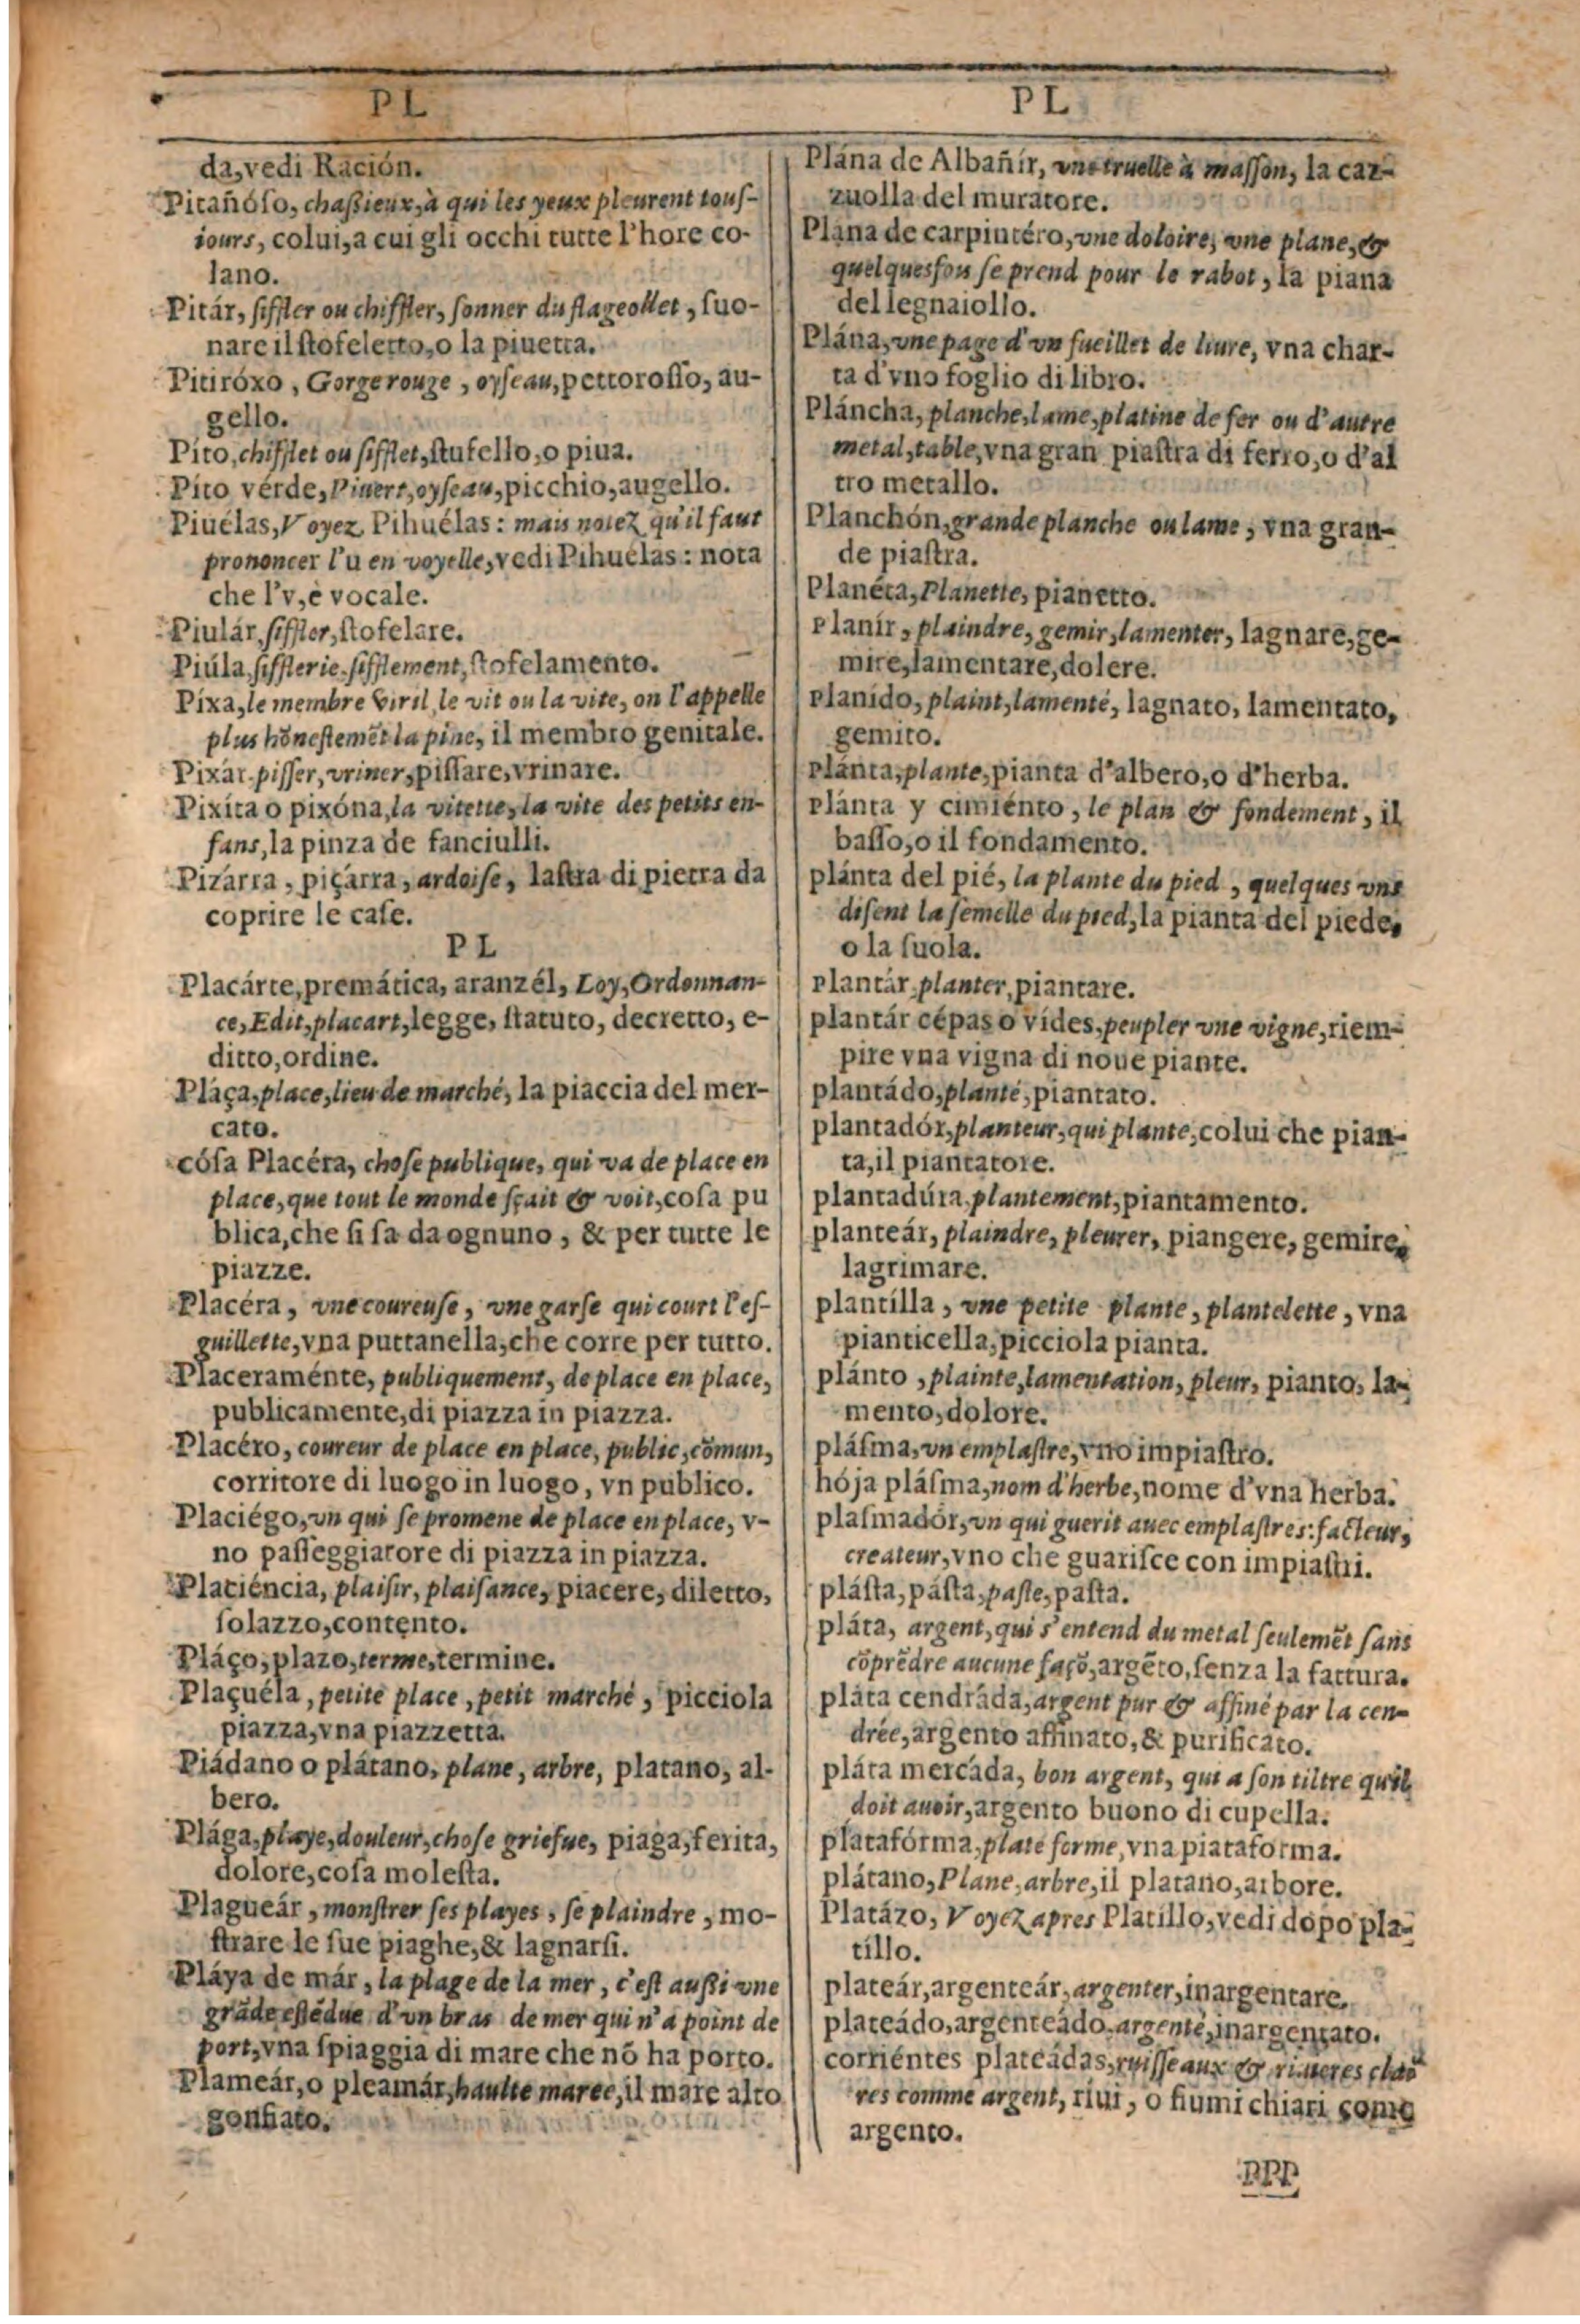 PL
da,vedi Ración.
Pitañóſo, chaßieux,à qui les yeux pleurent touſ-
iours, colui,a cui gli occhi tutte l'hore co-
lano.
Pitár, ſiffler ou chiffler, ſonner du flageollet, ſuo-
nare il ſtofeletto,o la piuetta.
Pitiróxo, Gorge rouge, oyſeau,pettoroſſo, au-
gello.
Pito,chifflet ou ſifflet,ſtufello,o piua.
Pito vérde,Piuert,oyſeau,picchio,augello.
Piuélas,Voyez Pihuélas: mais notez qu'il faut
prononcer l'u en voyelle,vedi Pihuélas: nota
che l'v,è vocale.
Piulár,ſiffler,ſtofelare.
Piúla,ſifflerie,ſifflement,ſtofelamento.
Píxa,le membre viril,le vit ou la vite, on l'appelle
plus hõneſtemẽt la pine, il membro genitale.
Pixár.piſſer,vriner,piſſare,vrinare.
Pixíta o pixóna,la vitette,la vite des petits en-
fans,la pinza de fanciulli.
Pizárra, piçárra, ardoiſe, laſtra di pietra da
coprire le caſe.
PL
Placárte,premática, aranzél, Loy,Ordonnan-
ce,Edit,placart,legge, ſtatuto, decretto, e-
ditto,ordine.
Pláça,place,lieu de marché, la piaccia del mer-
cato.
cóſa Placéra, choſe publique, qui va de place en
place,que tout le monde ſçait & voit,coſa pu
blica,che ſi ſa da ognuno, & per tutte le
piazze.
Placéra, vne coureuſe, vne garſe qui court l'eſ-
guillette,vna puttanella,che corre per tutto.
Placeraménte, publiquement, de place en place,
publicamente,di piazza in piazza.
Placéro, coureur de place en place, public,cõmun,
corritore di luogo in luogo, vn publico.
Placiégo,vn qui ſe promene de place en place, v-
no paſſeggiatore di piazza in piazza.
Platiéncia, plaiſir, plaiſance, piacere, diletto,
ſolazzo,contento.
Pláço,plazo,terme,termine.
Plaçuéla, petite place, petit marché, picciola
piazza,vna piazzetta.
Piádano o plátano, plane, arbre, platano, al-
bero.
Plága,playe,douleur,choſe griefue, piaga,ferita,
dolore,coſa moleſta.
Plagueár, monſtrer ſes playes, ſe plaindre, mo-
ſtrare le ſue piaghe,& lagnarſi.
Pláya de már, la plage de la mer, c'eſt außi vne
grãde eſtẽdue d'vn bras de mer qui n'a point de
port,vna ſpiaggia di mare che nõ ha porto.
Plameár,o pleamár,haulte maree,il mare alto
gonfiato.
PL
Plána de Albañír, vne truelle à maſſon, la caz-
zuolla del muratore.
Plána de carpintéro,vne doloire, vne plane,&
quelquesfois ſe prend pour le rabot, la piana
del legnaiollo.
Plána,vne page d'vn fueillet de liure, vna char-
ta d'vno foglio di libro.
Pláncha, planche,lame,platine de fer ou d'autre
metal,table,vna gran piaſtra di ferro,o d'al
tro metallo.
Planchón,grande planche ou lame, vna gran-
de piaſtra.
Planéta,Planette, pianetto.
Planír, plaindre, gemir,lamenter, lagnare,ge-
mire,lamentare,dolere.
planído, plaint,lamenté, lagnato, lamentato,
gemito.
plánta,plante,pianta d'albero,o d'herba.
plánta y cimiénto, le plan & fondement, il
baſſo,o il fondamento.
plánta del pié, la plante du pied, quelques vns
diſent la ſemelle du pied,la pianta del piede,
o la ſuola.
plantár,planter,piantare.
plantár cépas o vídes,peupler vne vigne,riem-
pire vna vigna di noue piante.
plantádo,planté,piantato.
plantadór,planteur,qui plante,colui che pian-
ta,il piantatore.
plantadúra,plantement,piantamento.
planteár, plaindre, pleurer, piangere, gemire,
lagrimare.
plantílla, vne petite plante, plantelette, vna
pianticella,picciola pianta.
plánto, plainte,lamentation, pleur, pianto, la-
mento,dolore.
pláſma,vn emplaſtre,vno impiaſtro.
hója pláſma,nom d'herbe,nome d'vna herba.
plaſmadór,vn qui guerit auec emplaſtres:facteur,
createur,vno che guariſce con impiaſtri.
pláſta,páſta,paſte,paſta.
pláta, argent,qui s'entend du metal ſeulemẽt ſans
cõprẽdre aucune façõ,argẽto,ſenza la fattura.
pláta cendráda,argent pur & affiné par la cen-
drée,argento affinato,& purificato.
pláta mercáda, bon argent, qui a ſon tiltre qu'il
doit auoir,argento buono di cupella.
platafórma,plate forme,vna piataforma.
plátano,Plane,arbre,il platano,arbore.
Platázo, Voyez apres Platillo,vedi dopo pla-
tillo.
plateár,argenteár,argenter,inargentare.
plateádo,argenteádo,argenté,inargentato.
corriéntes plateádas,ruiſſeaux & riuieres clai
res comme argent, riui, o fiumi chiari como
argento.
PPP